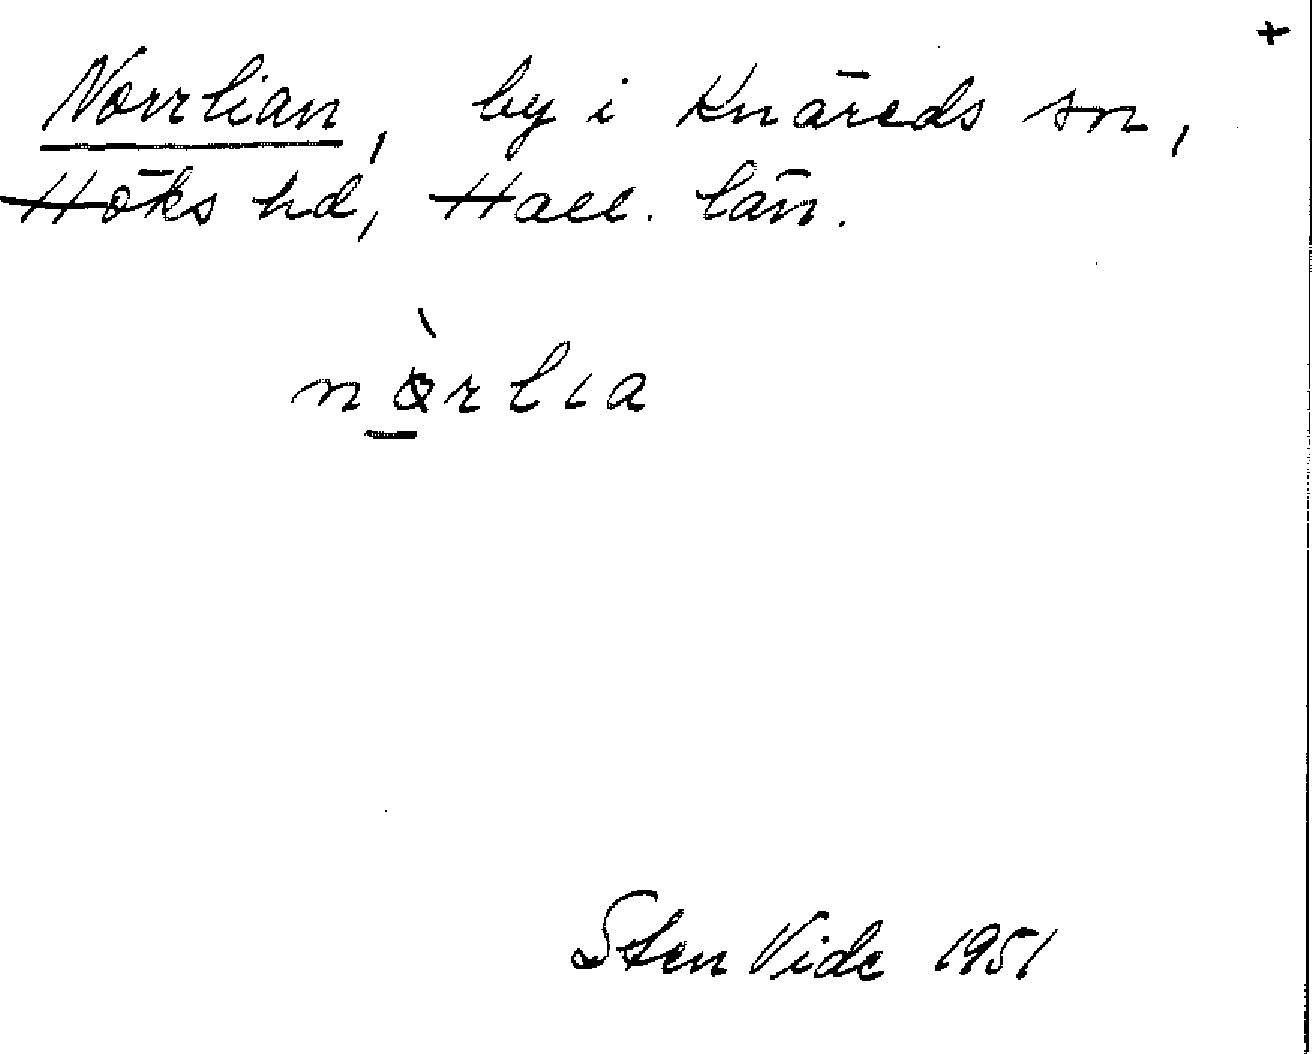 +
Norrlian, by i Knäreds sn,
Höks hd, Hall. län.
nò̱rlıa
Sten Vide 1951